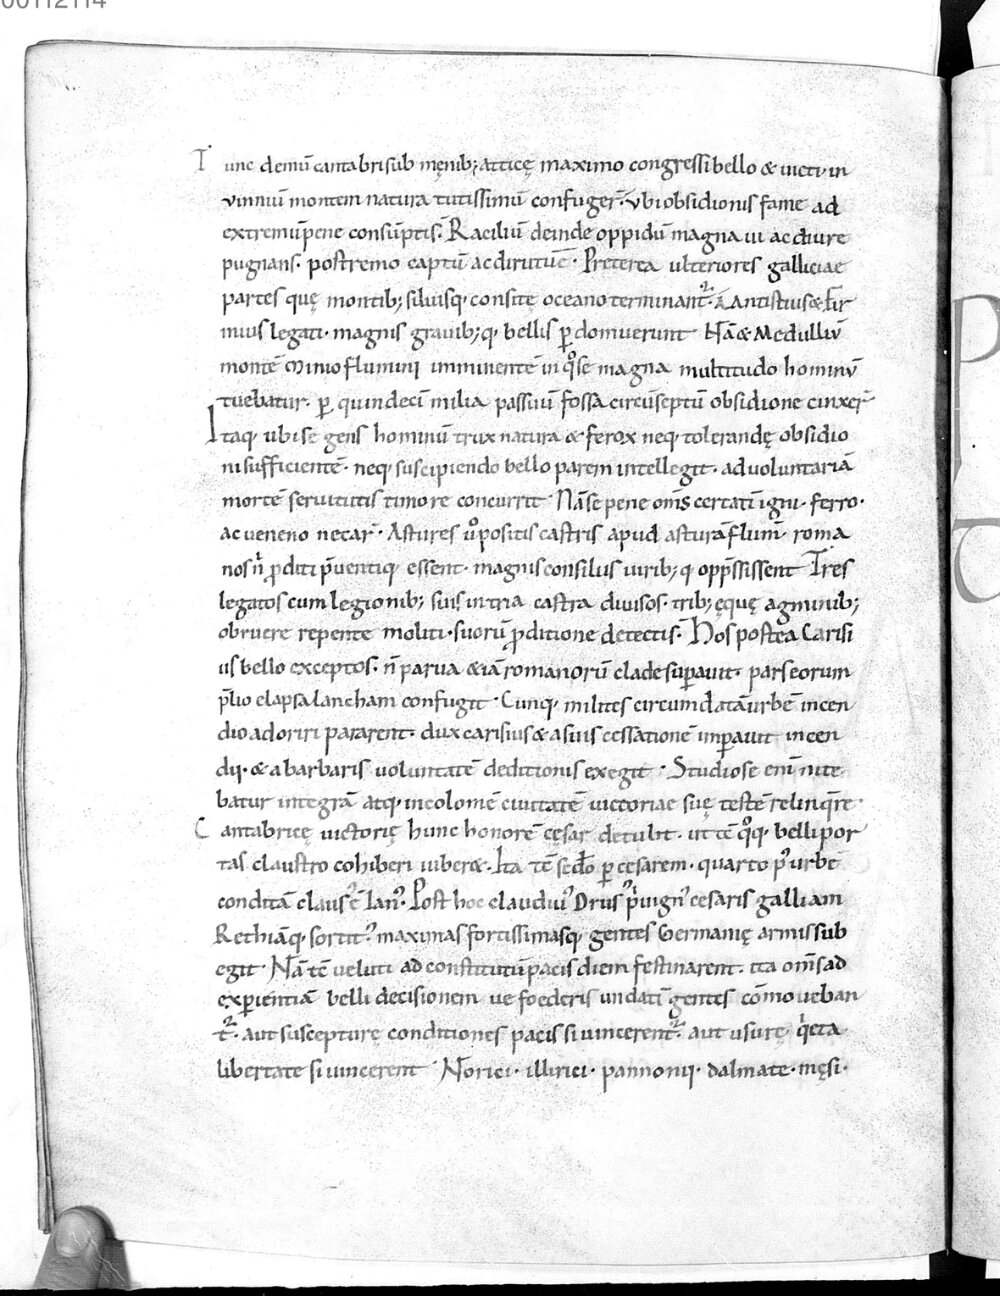 00112114
Tunc demū cantabri sub męnib; atticę maximo congressi bello & uicti in
vinniū montem natura tutissimū confuger̄. vbi obsidionis fame ad
extremū pene consūptis. Raciliū deinde oppidū magna ui ac diure
pugnans. postremo captū ac dirutū ē. Preterea ulteriores galliciae
partes quę montib; siluisq. consitę oceano terminant᷑. Antistius & Fir
mius legati. magnis grauib; q. bellis ꝑdomuerunt Nā & Medulliū
montē Minio flumini imminentē in q̊ se magna multitudo hominū
tuebatur. ꝑ quindecī milia passuū fossa circūseptū obsidione cinxer̄
Itaq. ubi se gens hominū trux natura & ferox neq. tolerandę obsidio
ni sufficientē. neq. suscipiendo bello parem intellegit. ad voluntariā
mortē seruitutis timore concurrit Nā se pene om̄s certatī igni. ferro.
ac ueneno necar̄. Astures ů positis castris apud asturā flum̄. roma
nos n̄ ꝓditi p̄uentiq. essent. magnis consiliis uirib; q. opp̄ssissent Tres
legatos cum legionib; suis in tria castra diuisos. trib; ęque agminib;
obruere repente moliti. suorū ꝓditione detecti s̄. Hos postea Carisi
us bello exceptos. n̄ parua & iā romanorū clade suꝑauit. pars eorum
p̄lio elapsa lancham confugit. Cunq. milites circumdatā urbē incen
dio adoriri pararent. dux carisius & a suis cessationē impauit incen
dii. & a barbaris voluntatē deditionis exegit. Studiose eni᷑ nite
batur integrā atq. incolomē ciuitatē uictoriae suę testē relinq̄re.
Cantabricę uictorię hunc honorē cęsar detulit. ut tē q̊q. belli por
tas claustro cohiberi iuber&. Ita tē sedo ꝑ cesarem. quarto p᷒ urbē
conditā claus᷒ ē Ian᷒. Post hoc claudiu᷒ Drus᷒ p̄uign᷒ cesaris galliam
Rethiāq. sortit᷒. maximas fortissimasq. gentes Germanię armis sub
egit. Nā tē veluti ad constitutū pacis diem festinarent. ita om̄s ad
exꝑientiā belli decisionem ue foederis undatī gentes cōmoueban
t᷑. aut suscepturę conditiones pacis si uincerent᷑. aut usurę q̇eta
libertate si uincerent Norici. illirici. pannonii. dalmate. męsi.